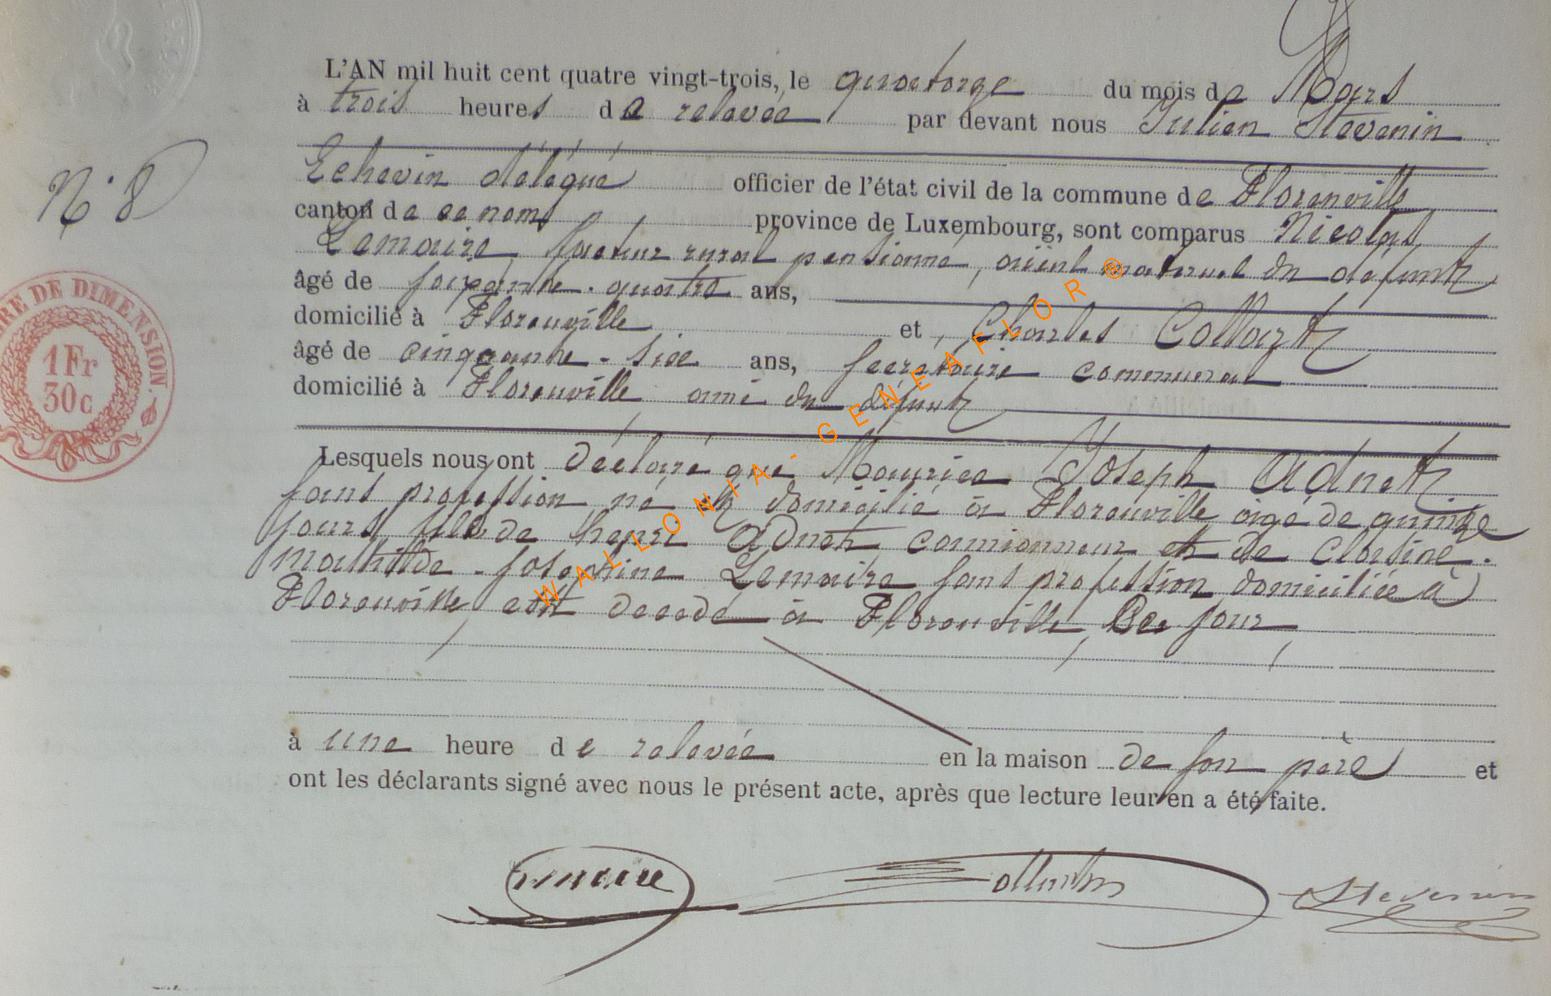 L'AN mil huit cent quatre vingt-trois, le quatorze du mois de Mars
à trois heures de relevée par devant nous Julien Stévenin
N° 8
Echevin délégué officier de l'état civil de la commune de Florenville
canton de ce nom, province de Luxembourg, sont comparus Nicolas
Lemaire, facteur rural pensionné, aïeul maternel du défunt
âgé de soixante-quatre ans,
domicilié à Florenville et Charles Collart
âgé de cinquante-six ans, secrétaire communal
domicilié à Florenville ami du défunt
Lesquels nous ont déclaré que Maurice Joseph Adnet
sans profession né et domicilié à Florenville âgé de quinze
jours fils de henri Adnet camionneur et de Clarine-
Mathilde-Joséphine Lemaire sans profession domiciliée à
Florenville, est décédé à Florenville, Ce jour
à une heure de relevée en la maison de son père et
ont les déclarants signé avec nous le présent acte, après que lecture leur en a été faite.
Lemaire Collart Stevenin
RE DE DIMENSION.
1Fr
30c
WALLONIA-GENEAFLOR®